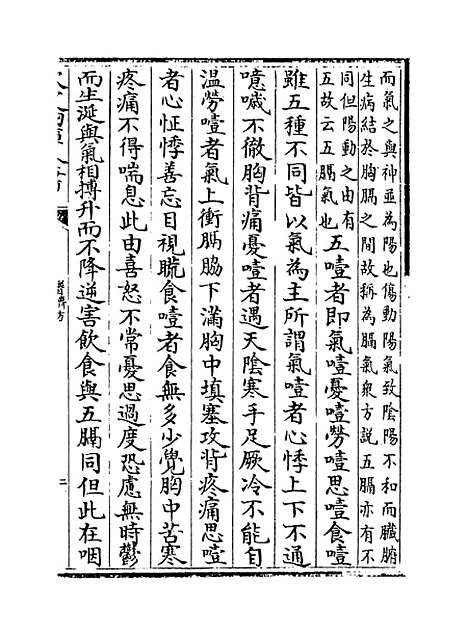 而氣之與神並為陽也傷動陽氣致陰陽不和而臟腑
生病結於胸膈之間故稱為膈氣衆方說五膈亦有不
同但陽動之由有
五故云五膈氣也五噎者即氣噎憂噎勞噎思噎食噎
雖五種不同皆以氣為主所謂氣噎者心悸上下不通
噫噦不徹胸背痛憂噎者遇天陰寒手足厥冷不能自
溫勞噎者氣上衝膈脇下滿胸中填塞攻背疼痛思噎
者心怔悸善忘目視䀮食噎者食無多少覺胸中苦寒
疼痛不得喘息此由喜怒不常憂思過度恐慮無時鬱
而生涎與氣相搏升而不降逆害飲食與五膈同但此在咽
普濟方
二